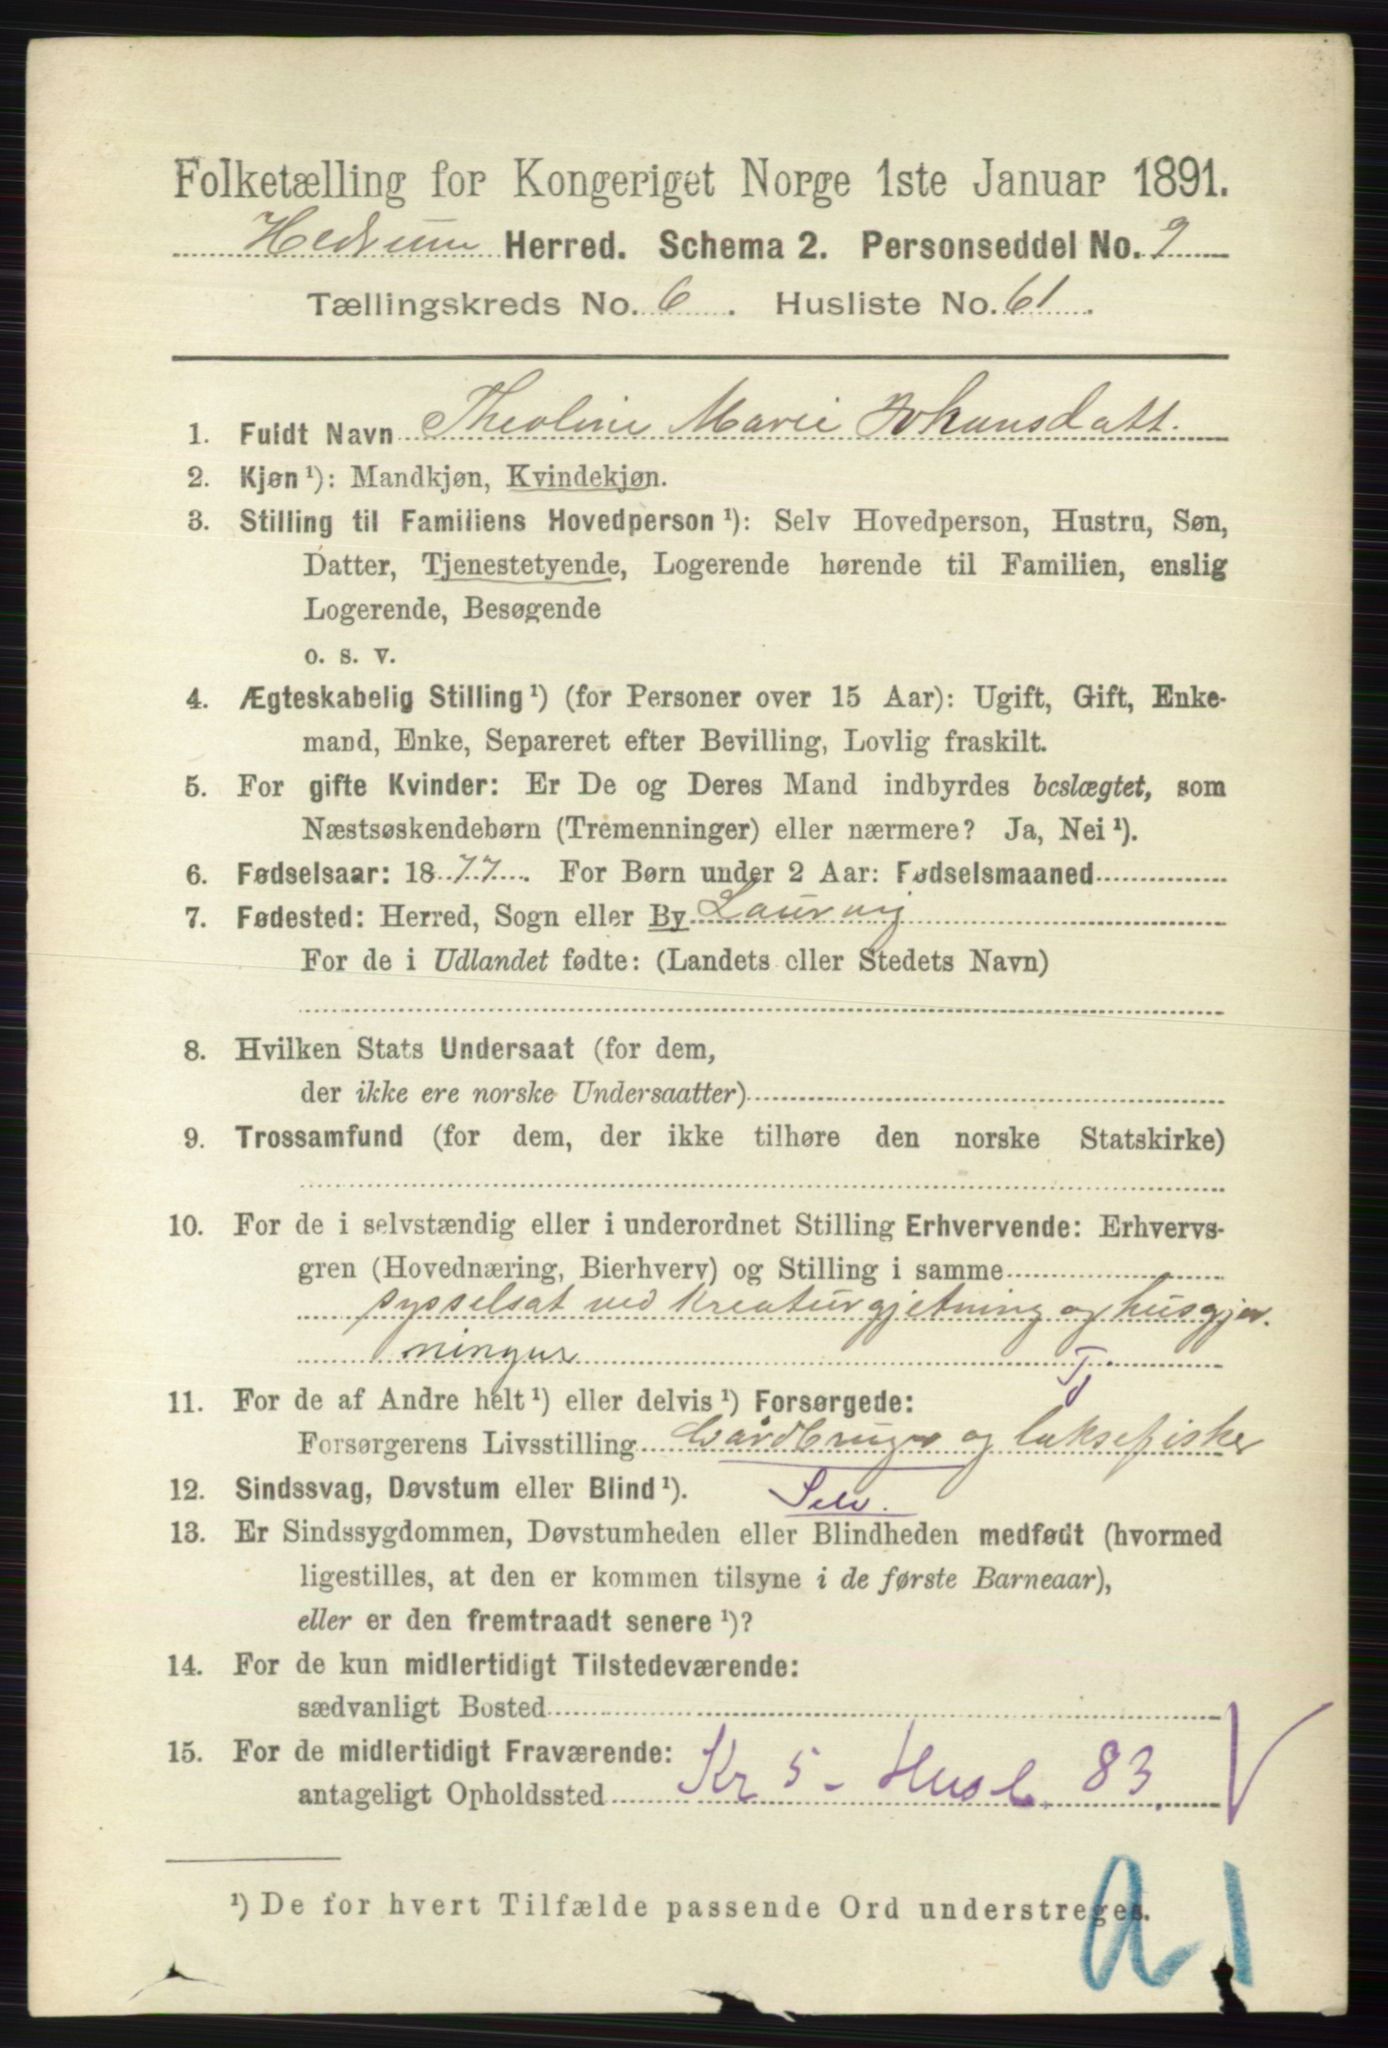 Folketælling for Kongeriget Norge 1ste Januar 1891.
Hedrum Herred. Schema 2. Personseddel No. 9
Tællingskreds No. 6. Husliste No. 61.
1. Fuldt Navn Theoline Marie Johansdatt.
2. Kjøn¹): Mandkjøn, Kvindekjøn.
3. Stilling til Familiens Hovedperson¹): Selv Hovedperson, Hustru, Søn,
Datter, Tjenestetyende, Logerende hørende til Familien, enslig
Logerende, Besøgende
o. s. v.
4. Ægteskabelig Stilling¹) (for Personer over 15 Aar): Ugift, Gift, Enke-
mand, Enke, Separeret efter Bevilling, Lovlig fraskilt.
5. For gifte Kvinder: Er De og Deres Mand indbyrdes beslægtet, som
Næstsøskendebørn (Tremenninger) eller nærmere? Ja, Nei¹).
6. Fødselsaar: 1877. For Børn under 2 Aar: Fødselsmaaned
7. Fødested: Herred, Sogn eller By Laurvig
For de i Udlandet fødte: (Landets eller Stedets Navn)
8. Hvilken Stats Undersaat (for dem,
der ikke ere norske Undersaatter)
9. Trossamfund (for dem, der ikke tilhøre den norske Statskirke)
10. For de i selvstændig eller i underordnet Stilling Erhvervende: Erhvervs-
gren (Hovednæring, Bierhverv) og Stilling i samme
sysselsat ved Kreaturgjetning og husgjer-
ninger T.
11. For de af Andre helt¹) eller delvis¹) Forsørgede:
Forsørgerens Livsstilling Gårdbruger og laksefisker
12. Sindssvag, Døvstum eller Blind¹). Selv.
13. Er Sindssygdommen, Døvstumheden eller Blindheden medfødt (hvormed
ligestilles, at den er kommen tilsyne i de første Barneaar),
eller er den fremtraadt senere¹)?
14. For de kun midlertidigt Tilstedeværende:
sædvanligt Bosted
15. For de midlertidigt Fraværende:
antageligt Opholdssted Kr 5 - Husl. 83. V
¹) De for hvert Tilfælde passende Ord understreges.